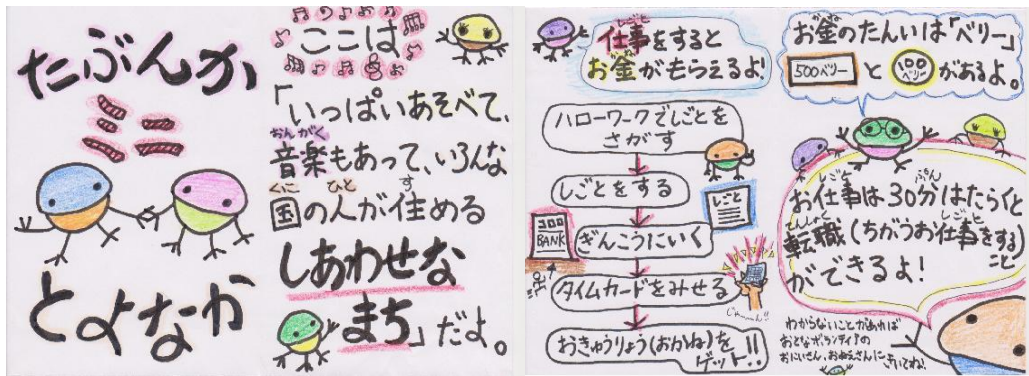 たぶんか
ミニ
とよなか
ここは
「いっぱいあそべて、
おんがく
音楽もあって、いろんな
くに ひと す
国の人が住める
しあわせな
まち」だよ。
しごと
仕事をすると
お金がもらえるよ!
ハローワークでしごとを
さがす
しごとをする
しごと
コロコロ
BANK
ぎんこうにいく
タイムカードをみせる
じゃーん!!
おきゅうりょう(おかね)を
ゲット!!
お金のたんいは「ベリー」
500ベリー と 100ベリー があるよ。
しごと ぷん
お仕事は30分はたらくと
てんしょく しごと
転職(ちがうお仕事をする)
こと
ができるよ!
わからないことがあれば
おとなボランティアの
おにいさん、おねえさんにきいてね!